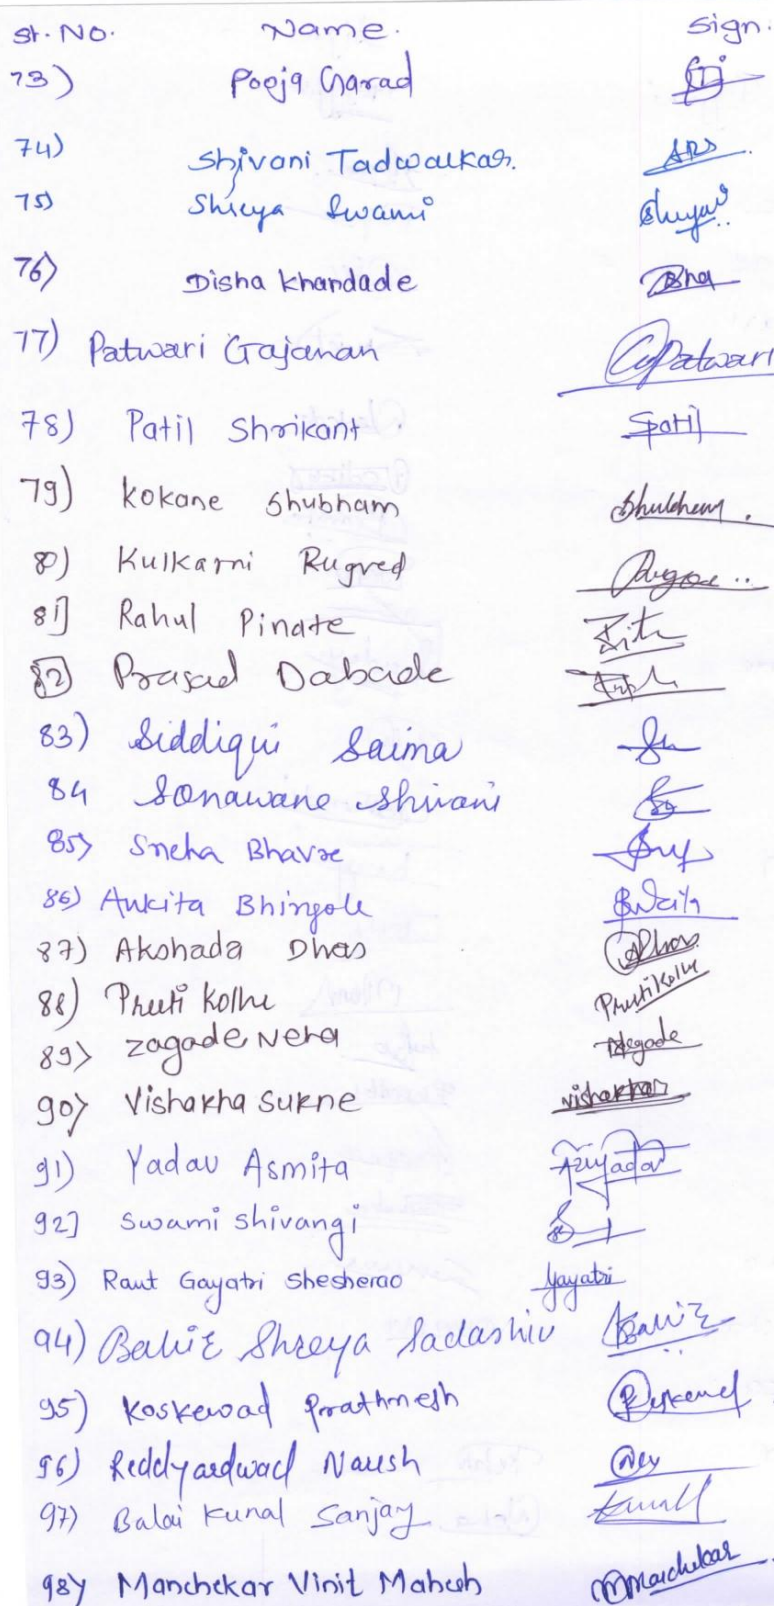 Sr. No. Name. Sign.
73) Pooja Garad
74) Shivani Tadwalkar.
75) Shreya Swami
76) Disha Khandade
77) Patwari Gajanan GPatwari
78) Patil Shrikant Spatil
79) Kokane Shubham Shubham.
80) Kulkarni Rugved
81] Rahul Pinate
82) Prasad Dabade
83) Siddiqui Saima
84 Sonawane Shivani
85) Sneha Bhavre
86) Ankita Bhingole Ankita
87) Akshada Dhas ADhas
88) Pruti Kolhe Pruti Kolhe
89) Zagade Neha
90) Vishakha Sukne vishakha
91) Yadav Asmita
92] Swami Shivangi
93) Raut Gayatri Shesherao Gayatri
94) Shreya Sadashiv
95) Koskewad Prathmesh
96) Reddyardwad Naresh
97) Balai Kunal Sanjay Kunal
98) Manchekar Vinit Mahesh Manchekar